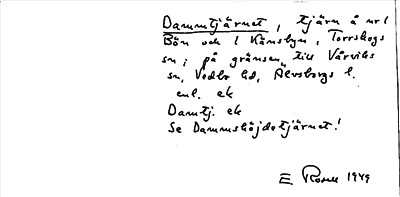 Dammtjärnet, tjärn å nr 1
Bön och 1 Känsbyn, Torrskogs
sn; på gränsen till Vårviks
sn, Vedbo hd, Älvsborgs l.
enl. ek
Damtj. ek
Se Dammshöjdetjärnet!
E. Rosell 1949